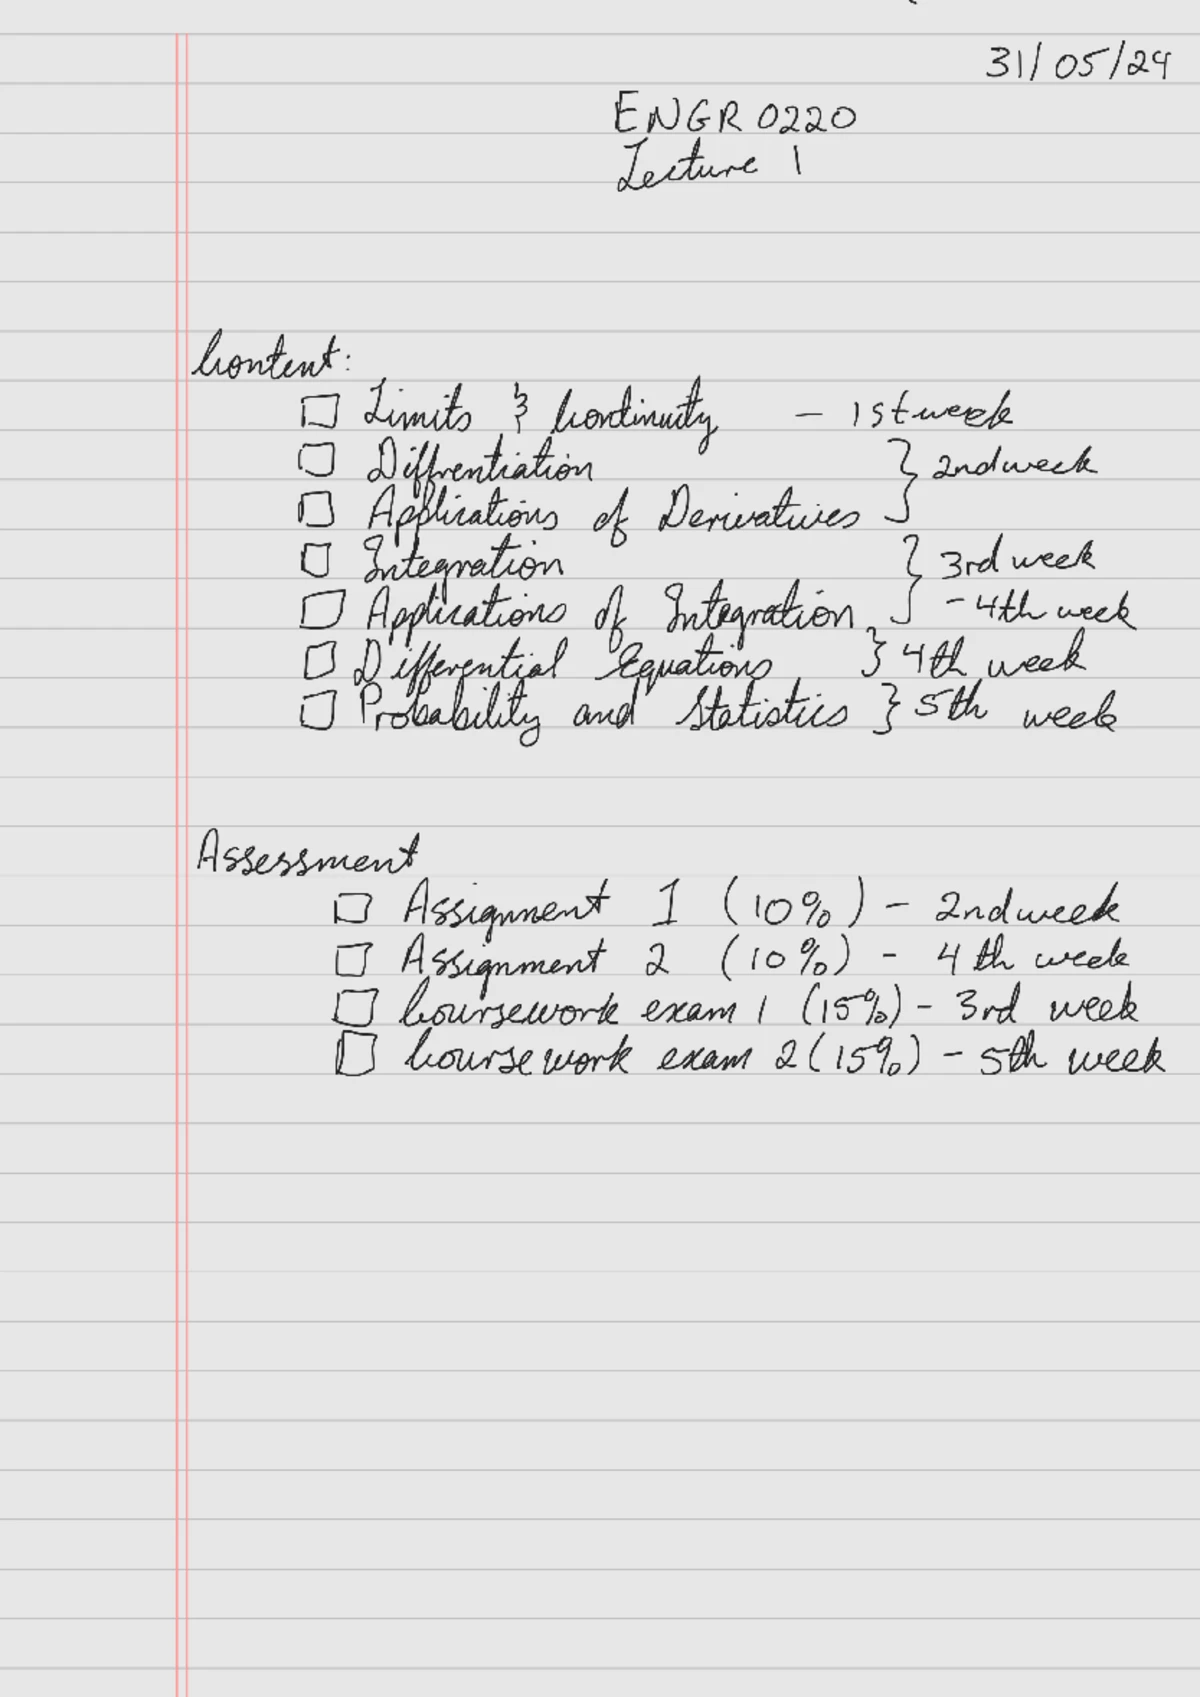 31/05/24
ENGR 0220
Lecture 1
Content:
☐ Limits & Continuity - 1st week
☐ Diffrentiation } 2nd week
☐ Applications of Derivatives
☐ Integration } 3rd week
☐ Applications of Integration - 4th week
☐ Differential Equations } 4th week
☐ Probability and Statistics } 5th week
Assessment
☐ Assignment 1 (10%) - 2nd week
☐ Assignment 2 (10%) - 4th week
☐ Coursework exam 1 (15%) - 3rd week
☐ Coursework exam 2 (15%) - 5th week